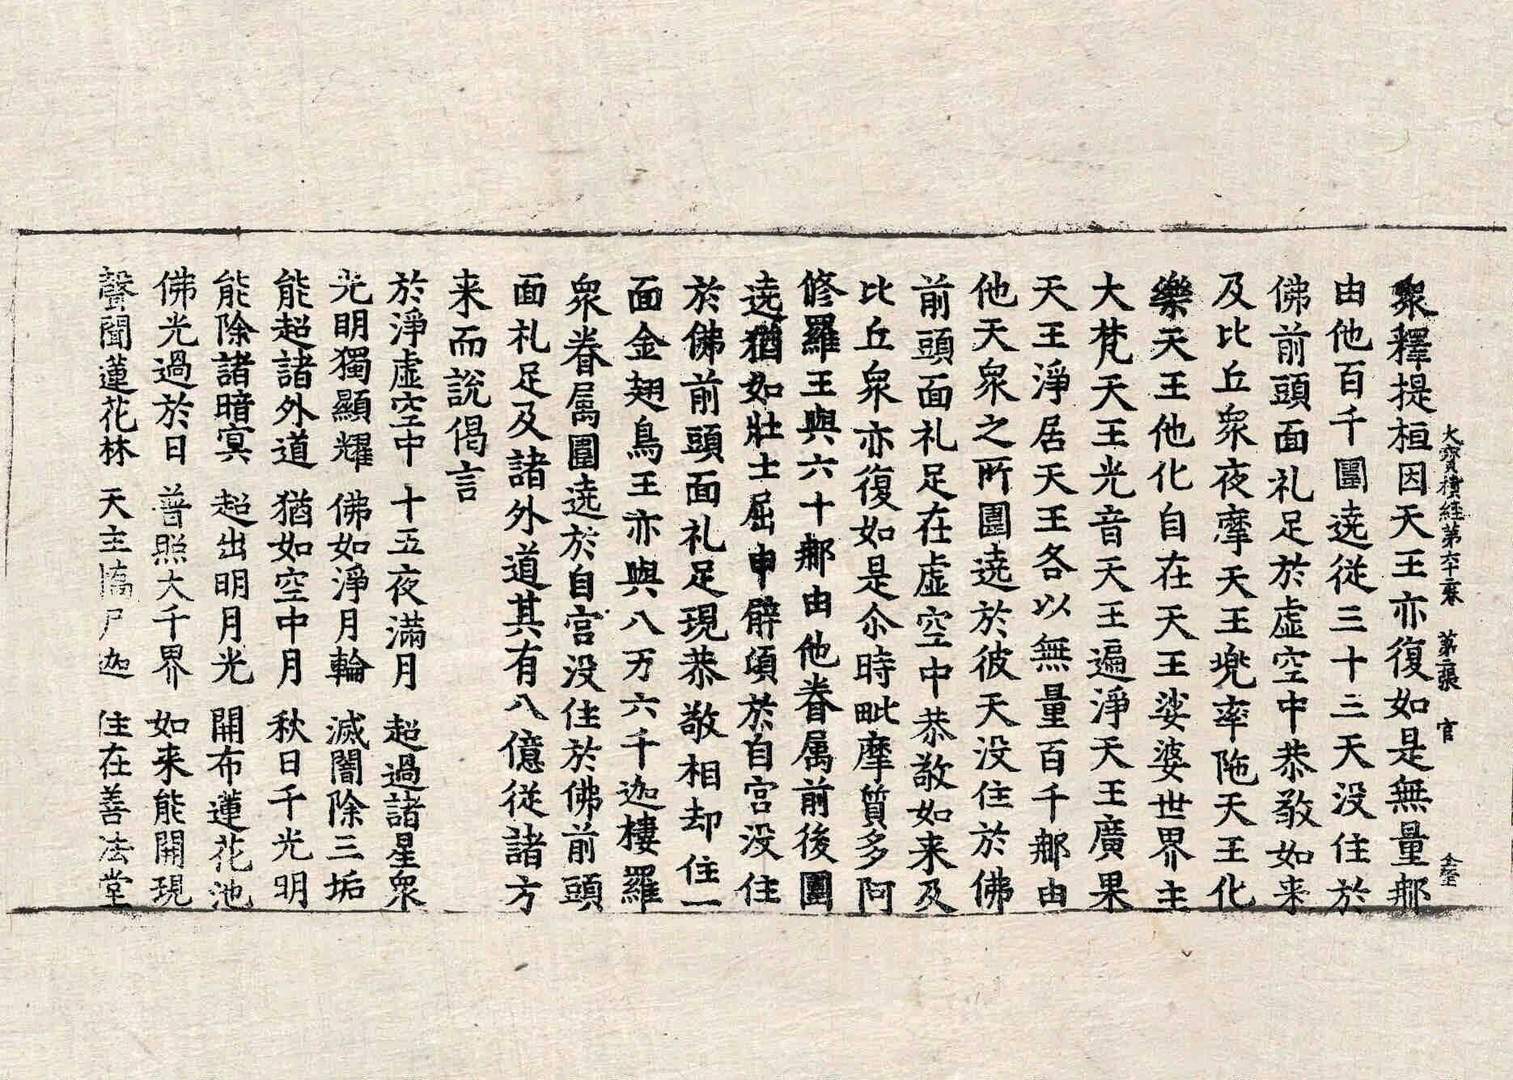 大寶積經第六十二卷 第二張 官
衆釋提桓因天王亦復如是無量那
由他百千圍遶從三十三天没住於
佛前頭面礼足於虛空中恭敬如来
及比丘衆夜摩天王兠率陁天王化
樂天王他化自在天王娑婆世界主
大梵天王光音天王遍淨天王廣果
天王淨居天王各以無量百千那由
他天衆之所圍遶於彼天没住於佛
前頭面礼足在虛空中恭敬如来及
比丘衆亦復如是尒時毗摩質多阿
修羅王與六十那由他眷属前後圍
遶猶如壯士屈申臂頃於自宫没住
於佛前頭面礼足現恭敬相却住一
面金翅鳥王亦與八万六千迦樓羅
衆眷属圍遶於自宫没住於佛前頭
面礼足及諸外道其有八億從諸方
来而說偈言
於淨虛空中 十五夜滿月 超過諸星衆
光明獨顯耀 佛如淨月輪 滅闇除三垢
能超諸外道 猶如空中月 秋日千光明
能除諸暗冥 超出明月光 開布蓮花池
佛光過於日 普照大千界 如来能開現
聲聞蓮花林 天主憍尸迦 住在善法堂